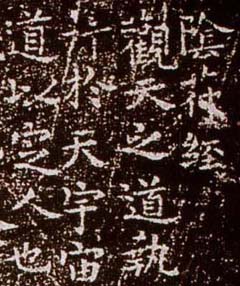 陰符經
觀天之道執
行於天宇宙
道以定人也